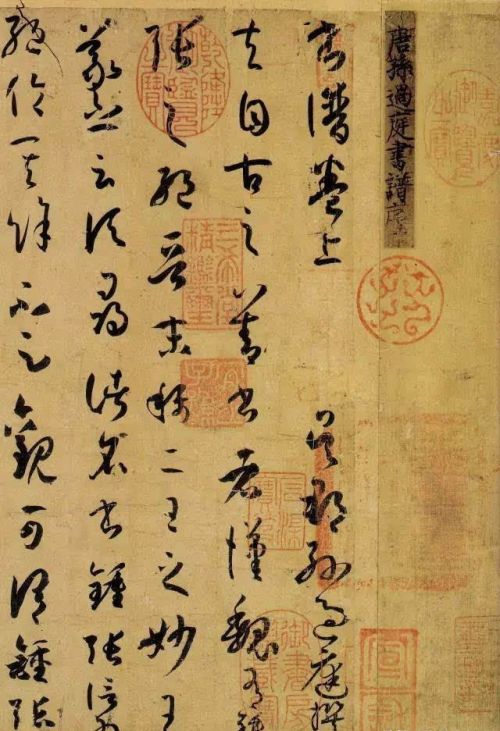 唐孫過庭書譜序
書譜卷上 吳郡孫過庭撰
夫自古之善書者漢魏有鍾
張之絕晉末稱二王之妙王
羲之云頃尋諸名書鍾張信為
絕倫其餘不足觀可謂鍾張
三希堂精鑑璽
宜子孫